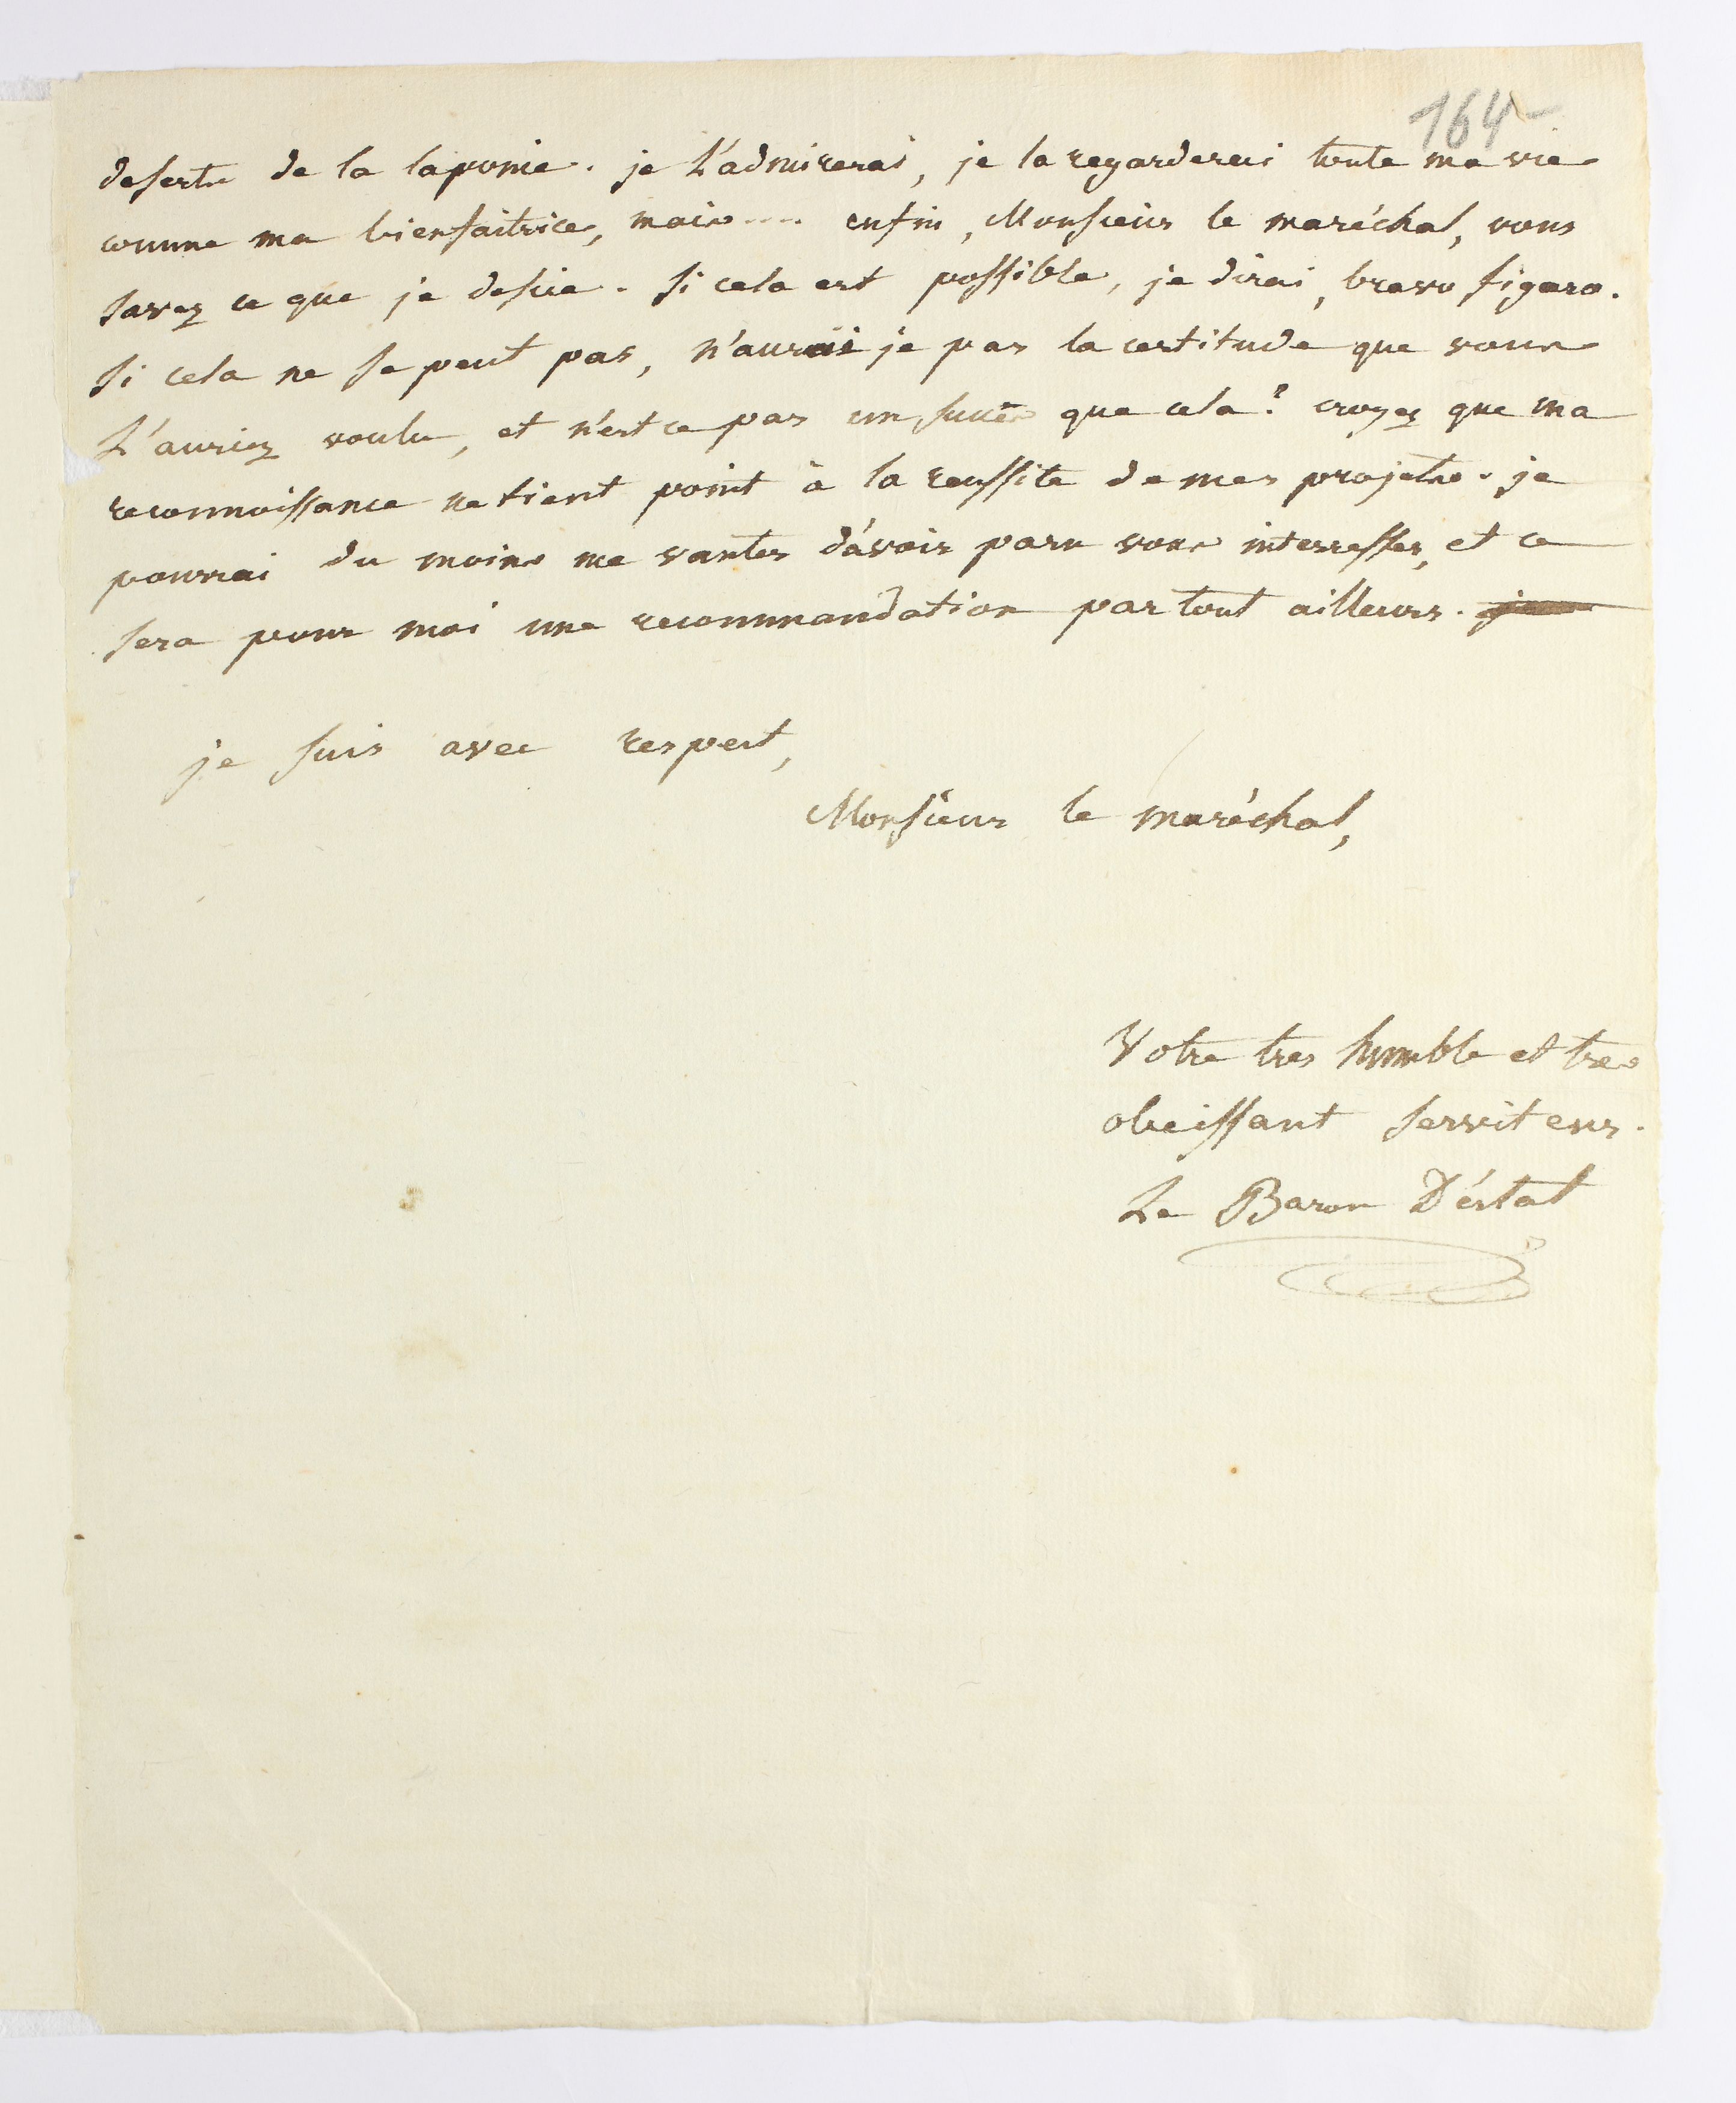 164
deserts de la laponie. je L'admirerai, je la regarderai toute ma vie
comme ma bienfaitrice, mais .... enfin, Monsieur le maréchal, vous
savez ce que je desire. si cela est possible, je dirai, bravo figaro.
si cela ne se peut pas, n'aurai je pas la certitude que vous
L'auriez voulu, et n'est ce pas un succès que cela? croyez que ma
reconnoissance ne tient point à la reussite de mes projets. je
pourrai du moins me vanter d'avoir paru vous interresser, et ce
sera pour moi une recommandation par tout ailleurs. je
je suis avec respect,
Monsieur le maréchal,
Votre tres humble et tres
obeissant serviteur.
Le Baron D'éstat